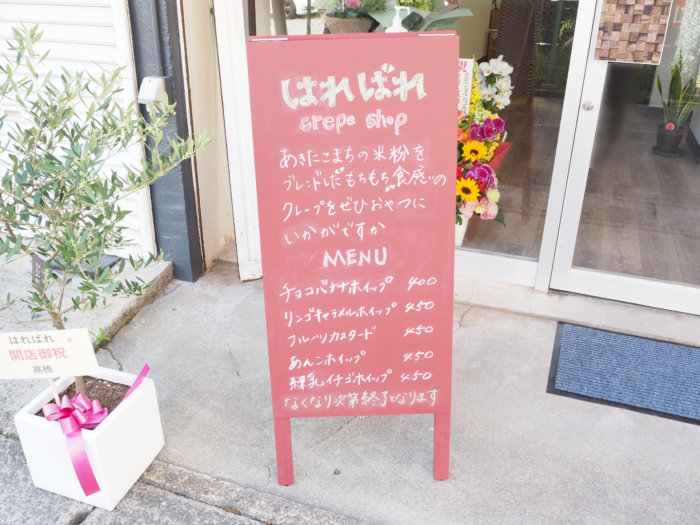 はればれ
crepe shop
あきたこまちの米粉を
ブレンドしたもちもち食感の
クレープをぜひおやつに
いかがですか
MENU
チョコバナナホイップ 400
リンゴキャラメルホイップ 450
フルベリカスタード 450
あんこホイップ 450
練乳イチゴホイップ 450
なくなり次第終了となります
はればれ
開店御祝
髙橋